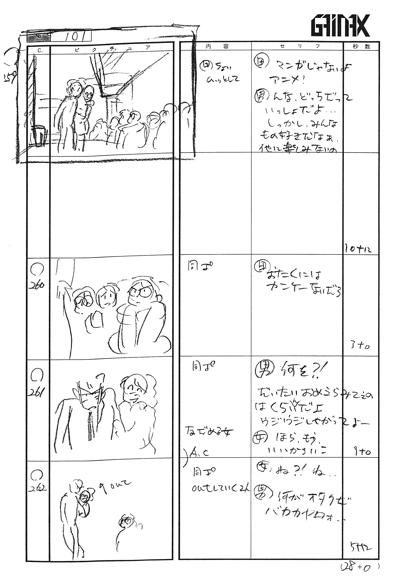 GAINAX
101
C. ピクチュア 内容 セリフ 秒数
159
マンガじゃないよ
アニメ!
男 んな、どっちだって
いっしょだよ…
しっかし、みんな
もの好きだなぁ、
他に楽しみないの
10+12
260
同ポ
おたくには
カンケーないだろ
3+0
261
同ポ
男 何を?!
だいたいおめえらみてえの
はくらいんだよ
ウジウジしやがってよー
なだめる女
女 ほら、もう、
いいから
9+0
A.C
262
9 out
同ポ
outしていく2人
女 ね?! ね…
男 何がオタクだ
バカヤロォ…
5+12
(28+0)